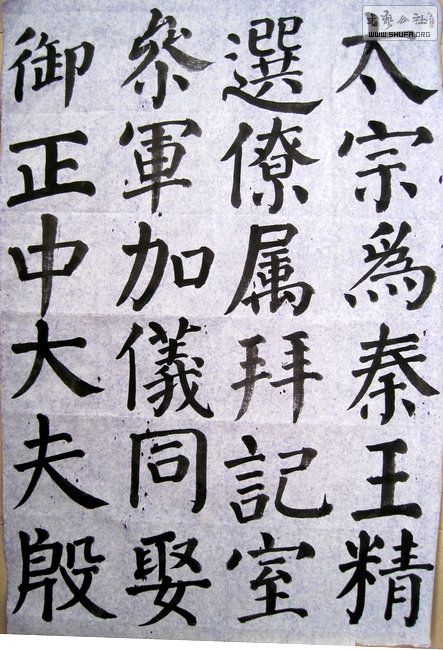 太宗為秦王精
選僚属拜記室
叅軍加儀同娶
御正中大夫殷
WWW.SHUFA.ORG